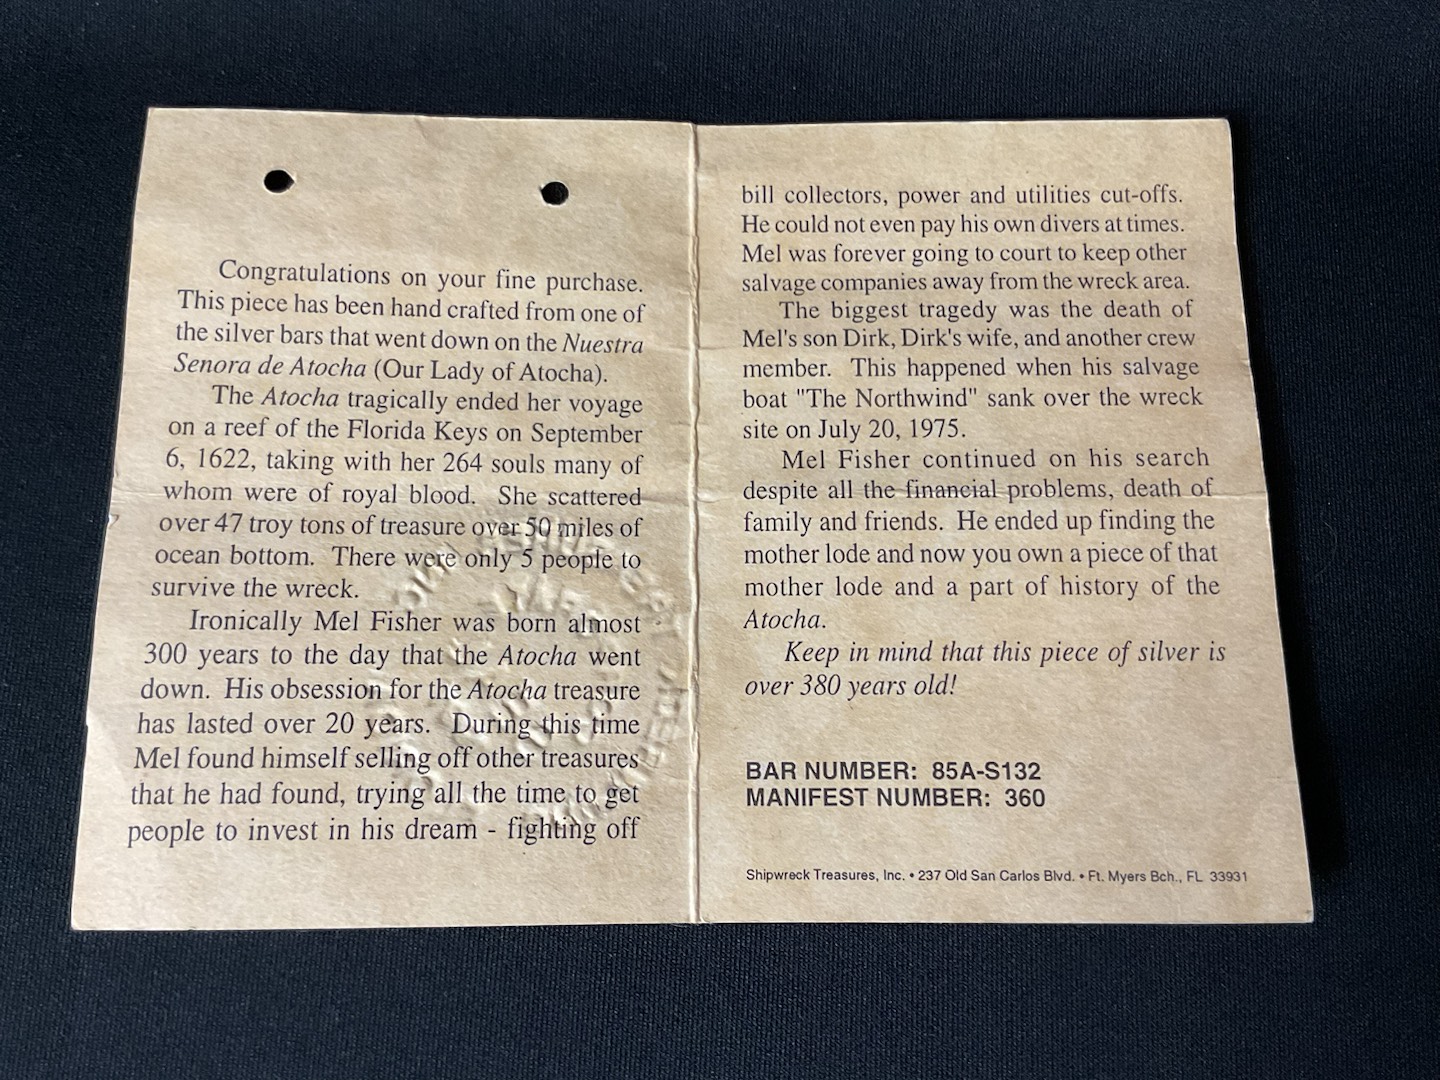 Congratulations on your fine purchase.
This piece has been hand crafted from one of
the silver bars that went down on the Nuestra
Senora de Atocha (Our Lady of Atocha).
The Atocha tragically ended her voyage
on a reef of the Florida Keys on September
6, 1622, taking with her 264 souls many of
whom were of royal blood. She scattered
over 47 troy tons of treasure over 50 miles of
ocean bottom. There were only 5 people to
survive the wreck.
Ironically Mel Fisher was born almost
300 years to the day that the Atocha went
down. His obsession for the Atocha treasure
has lasted over 20 years. During this time
Mel found himself selling off other treasures
that he had found, trying all the time to get
people to invest in his dream - fighting off
bill collectors, power and utilities cut-offs.
He could not even pay his own divers at times.
Mel was forever going to court to keep other
salvage companies away from the wreck area.
The biggest tragedy was the death of
Mel's son Dirk, Dirk's wife, and another crew
member. This happened when his salvage
boat "The Northwind" sank over the wreck
site on July 20, 1975.
Mel Fisher continued on his search
despite all the financial problems, death of
family and friends. He ended up finding the
mother lode and now you own a piece of that
mother lode and a part of history of the
Atocha.
Keep in mind that this piece of silver is
over 380 years old!
BAR NUMBER: 85A-S132
MANIFEST NUMBER: 360
Shipwreck Treasures, Inc. • 237 Old San Carlos Blvd. • Ft. Myers Bch., FL 33931